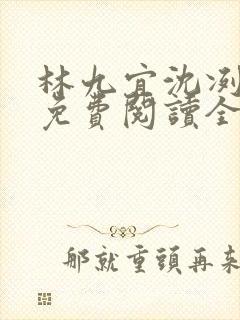 林九宜沈冽
免費閱讀全
那就重頭再來